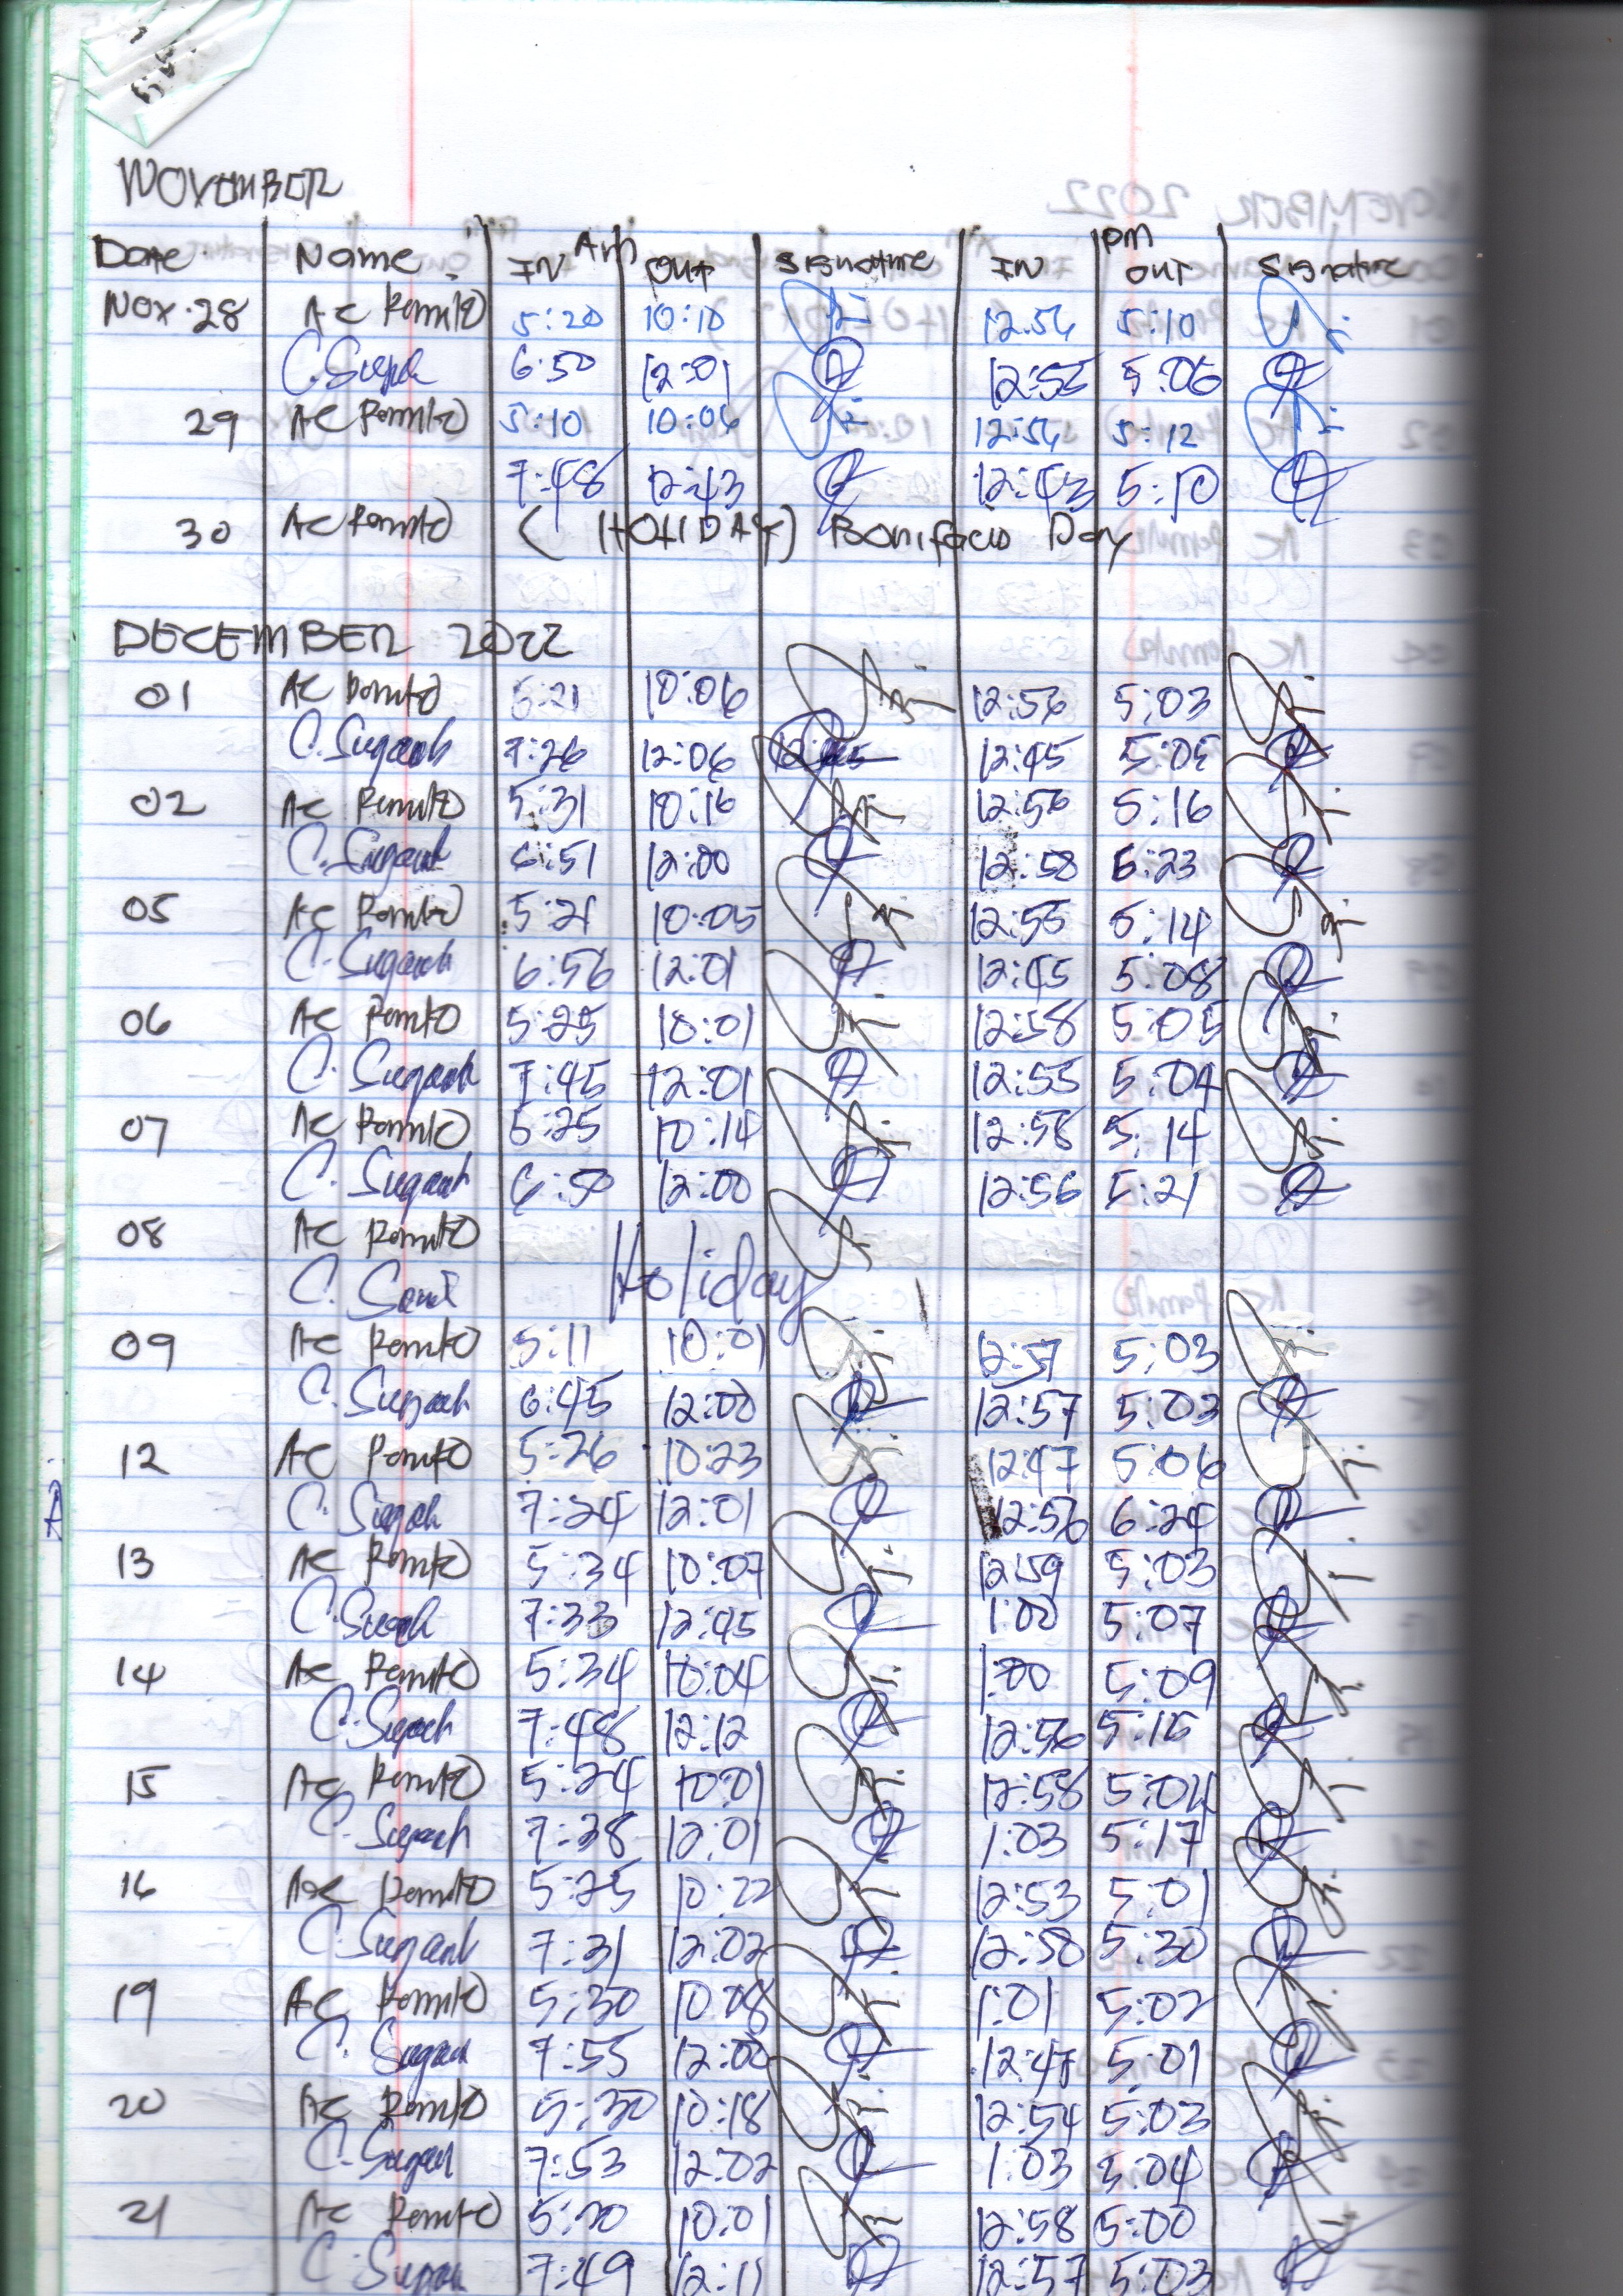 NOVEMBER
AM PM
Date Name IN OUT Signature IN OUT Signature
Nov. 28 AC Romito 5:20 10:10 12:56 5:10
6:50 12:01 12:55 5:06
29 AC Romito 5:10 10:06 12:56 5:12
7:48 12:43 12:43 5:10
30 AC Romito (HOLIDAY) Bonifacio Day
DECEMBER 2022
01 AC Romito 5:21 10:06 12:56 5:03
C. Suganh 7:26 12:06 12:45 5:05
02 AC Romito 5:31 10:16 12:56 5:16
C. Suganh 6:51 12:00 12:58 5:23
05 AC Romito 5:21 10:05 12:55 5:14
C. Suganh 6:56 12:01 12:45 5:08
06 AC Romito 5:25 10:01 12:58 5:05
C. Suganh 7:45 12:01 12:55 5:04
07 AC Romito 5:25 10:14 12:58 5:14
C. Suganh 6:50 12:00 12:56 5:21
08 AC Romito
C. Holiday
09 AC Romito 5:11 10:01 12:57 5:03
C. Suganh 6:45 12:00 12:57 5:03
12 AC Romito 5:26 10:23 12:47 5:06
C. 7:24 12:01 12:56 6:24
13 AC Romito 5:34 10:07 12:59 5:03
C. 7:33 12:45 1:00 5:07
14 AC Romito 5:34 10:04 1:00 5:09
C. 7:48 12:12 12:56 5:15
15 AC Romito 5:24 10:01 12:58 5:04
C. 7:38 12:01 1:03 5:17
16 AC Romito 5:25 10:22 12:53 5:01
C. Suganh 7:31 12:02 12:58 5:30
19 AC Romito 5:30 10:08 1:01 5:02
C. 7:55 12:00 12:47 5:01
20 AC Romito 5:30 10:18 12:54 5:03
C. 7:53 12:02 1:03 5:04
21 AC Romito 5:20 10:01 12:58 5:00
C. 7:49 12:11 12:57 5:03